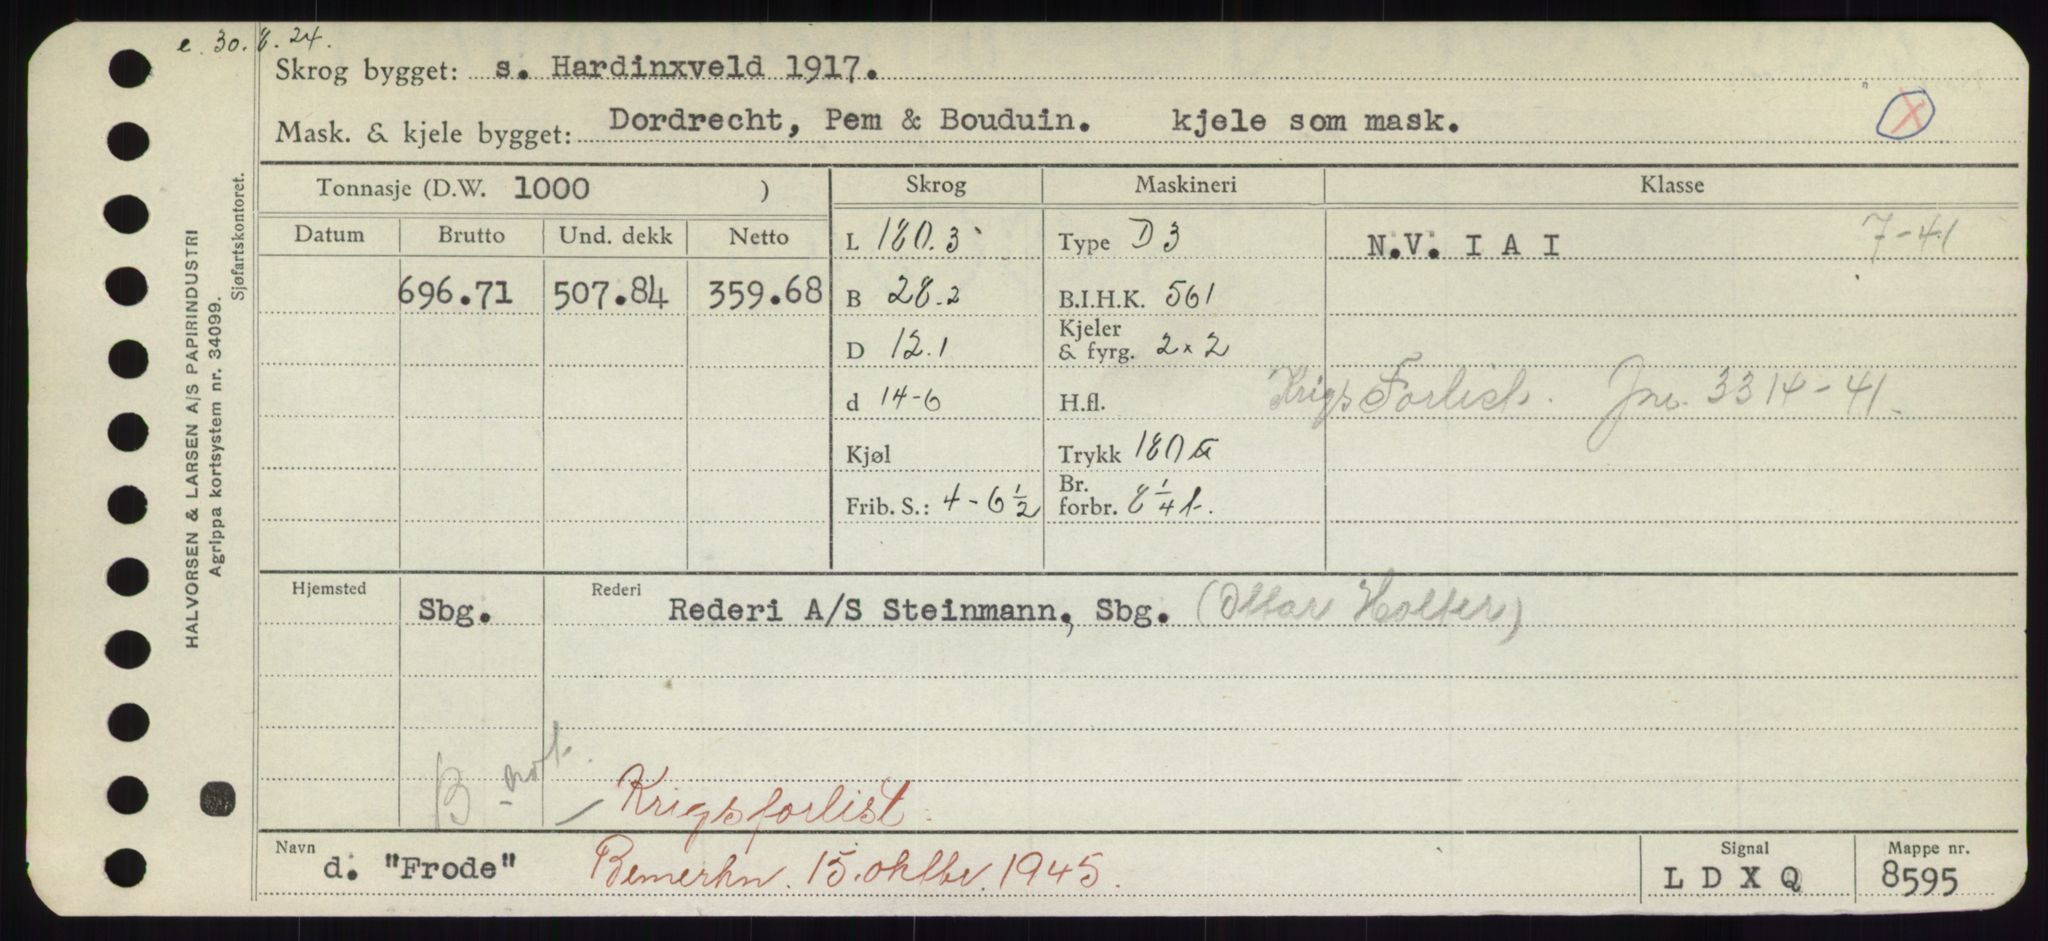 e. 30.8.24.
Skrog bygget: s. Hardinxveld 1917.
Mask. & kjele bygget: Dordrecht, Pem & Bouduin. kjele som mask.
X
Tonnasje (D.W. 1000 )
Skrog
Maskineri
Klasse
Datum
Brutto
Und. dekk
Netto
696.71
507.84
359.68
L 180.3
B 28.2
D 12.1
d 14-6
Kjøl
Frib. S.: 4-6 1/2
Type D3
B.I.H.K. 561
Kjeler
& fyrg. 2x2
H.fl.
Trykk 180
Br.
forbr. 8 1/4 t.
N.V. I A I
7-41
Krigsforlist. Jnr. 3314-41.
Hjemsted
Sbg.
Rederi
Rederi A/S Steinmann, Sbg. (Ottar Holter)
B not.
Krigsforlist.
Navn
d. "Frode"
Bemerkn. 15. oktbr. 1945.
Signal
L D X Q
Mappe nr.
8595
HALVORSEN & LARSEN A/S PAPIRINDUSTRI
Agrippa kortsystem nr. 34099.
Sjøfartskontoret.